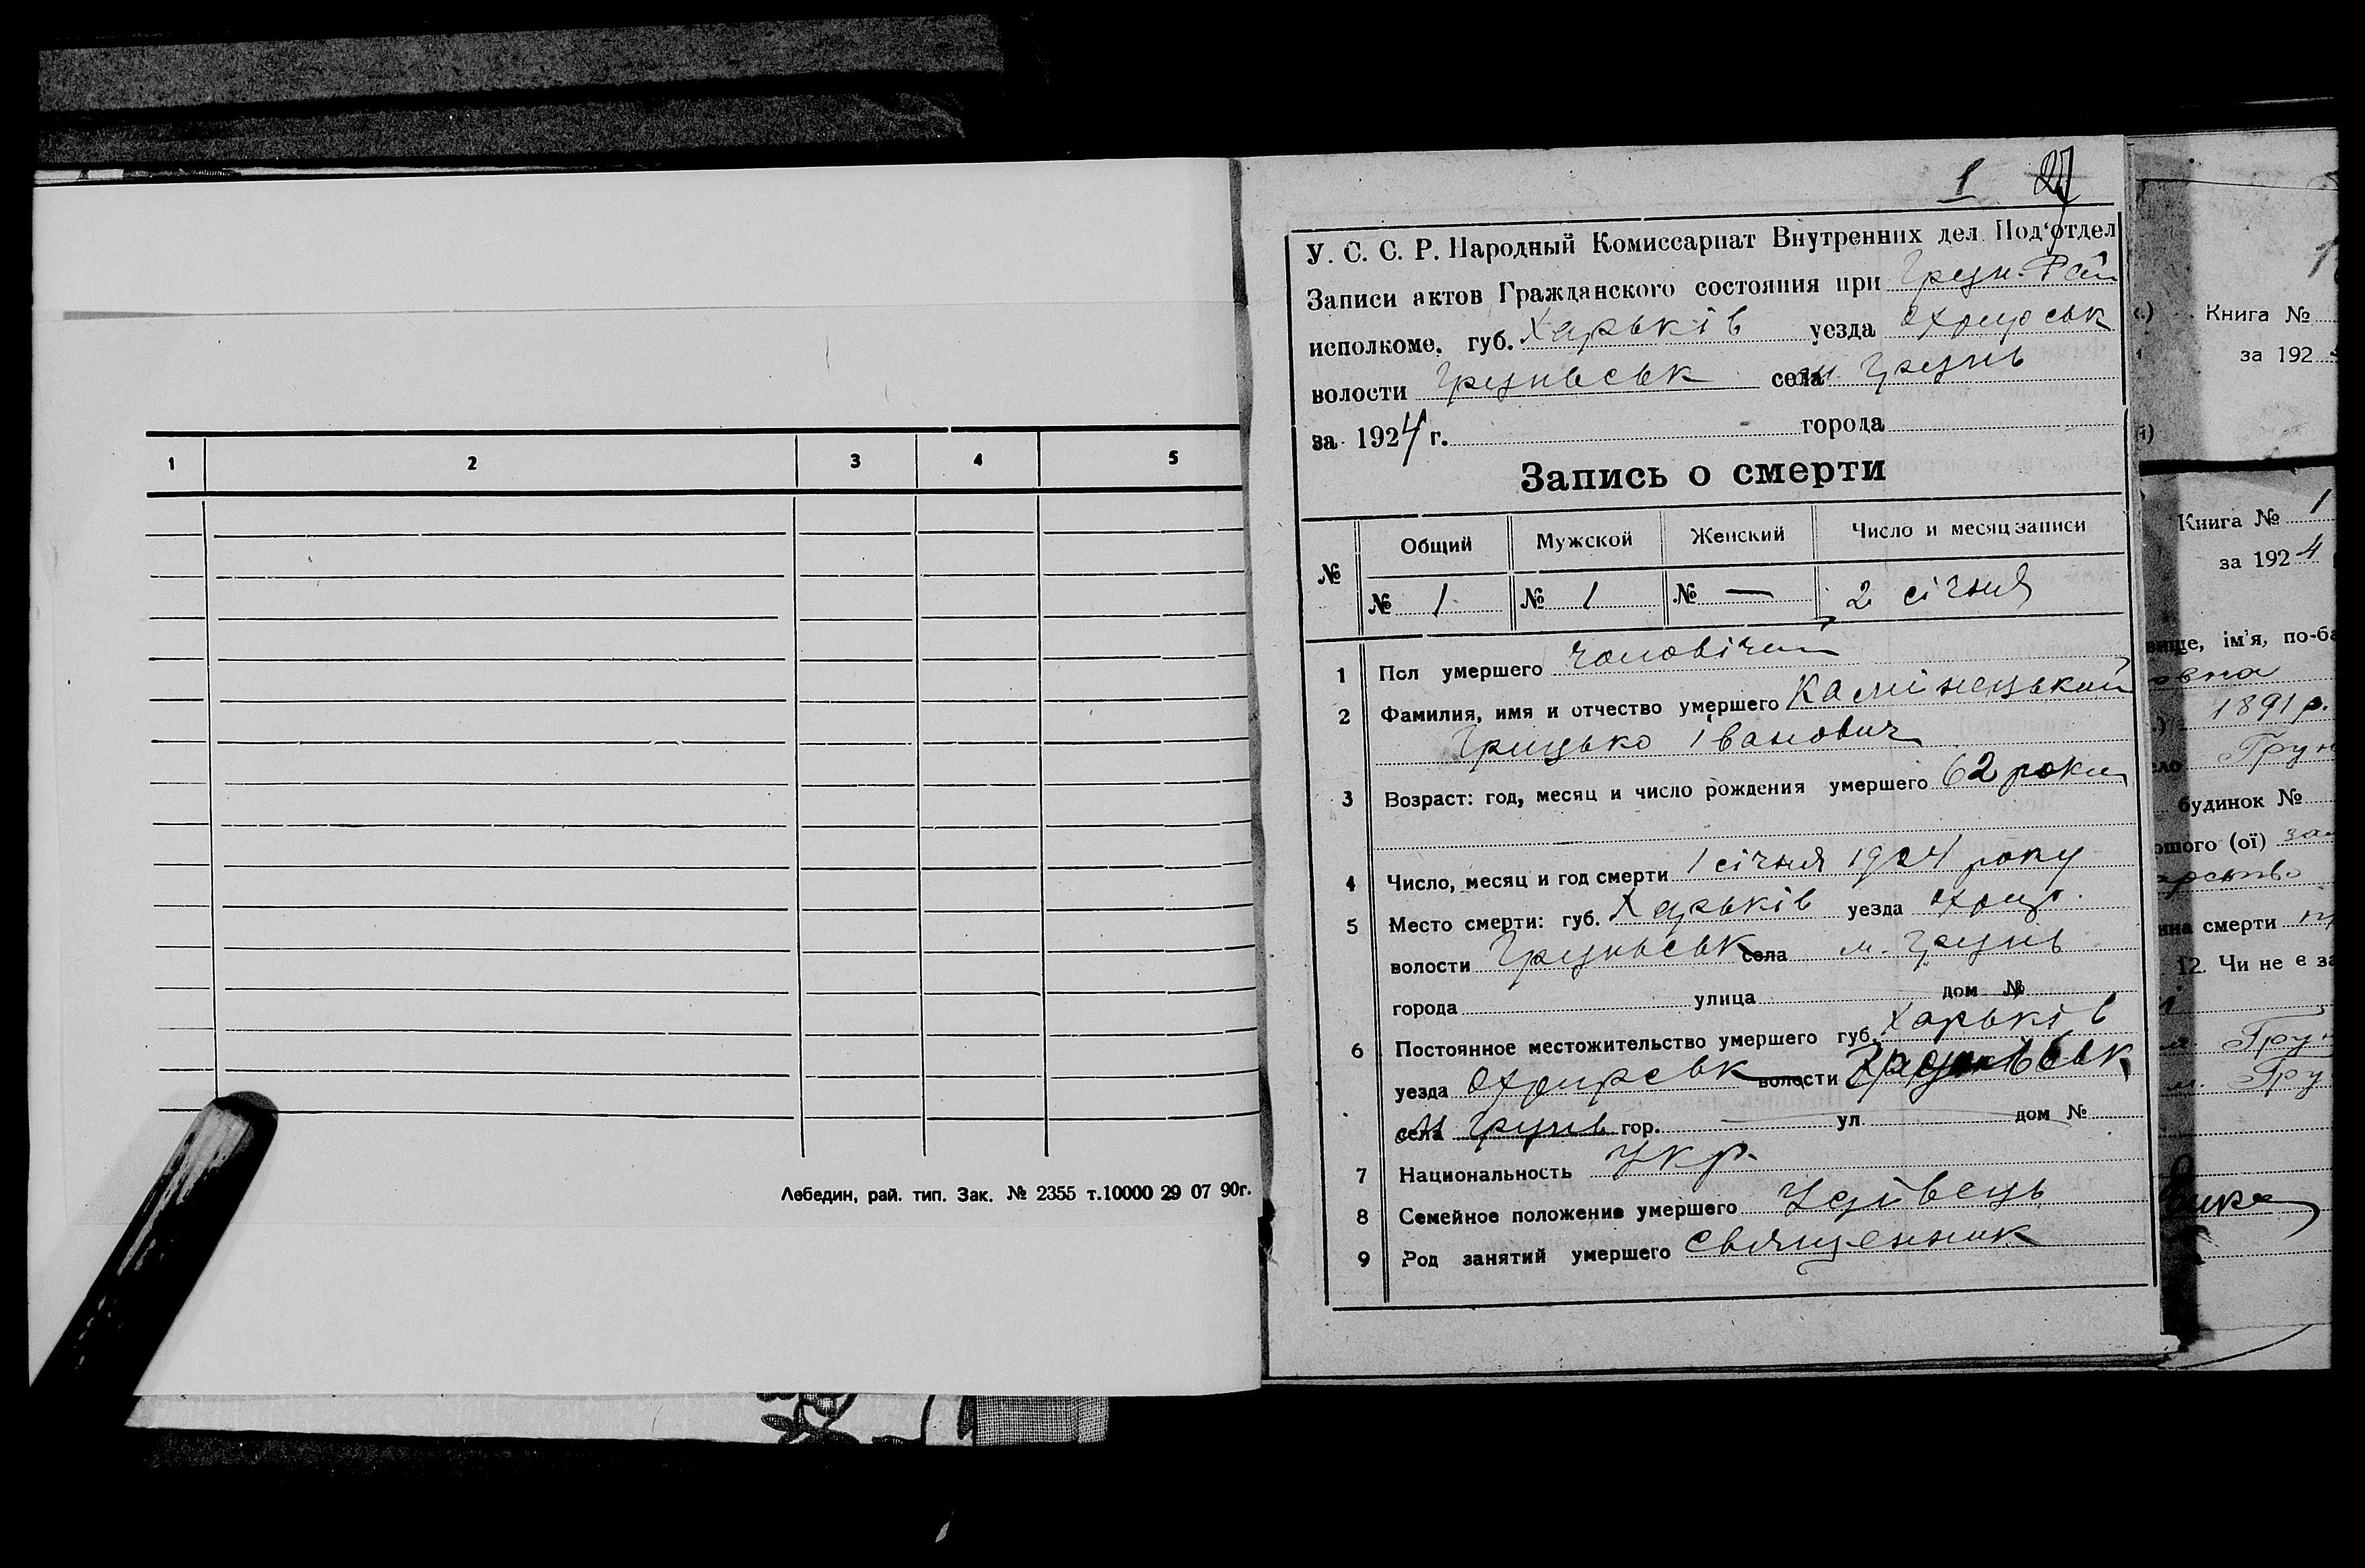 1 2 3 4 5
Лебедин, рай. тип. Зак. № 2355 т.10000 29 07 90г.
1 27
У. С. С. Р. Народный Комиссариат Внутренних дел Под'отдел
Записи актов Гражданского состояния при Грун. Рай
исполкоме, губ. Харьків уезда Охтирськ
волости Груньськ села м. Грунь
за 1924 г. - города
Запись о смерти
№ Общий Мужской Женский Число и месяц записи
№ 1 № 1 № — 2 січня
1 Пол умершего чоловічий
2 Фамилия, имя и отчество умершего Камінецький
Грицько Іванович
3 Возраст: год, месяц и число рождения умершего 62 роки
4 Число, месяц и год смерти 1 січня 1924 року
5 Место смерти: губ. Харьків уезда Охтир.
волости Груньськ села м. Грунь
города улица дом №
6 Постоянное местожительство умершего губ. Харьків
уезда Охтирськ волости Груньськ
села м Грунь гор. ул. дом №
7 Национальность Укр.
8 Семейное положение умершего Удівець
9 Род занятий умершего священник
Книга №
за 192
Книга № 1
за 1924
вище, ім'я, по-ба
овна
1891 р.
ло Грун
будинок №
ршого (ої) зам
смерти
12. Чи не є за
Грун
м. Гру